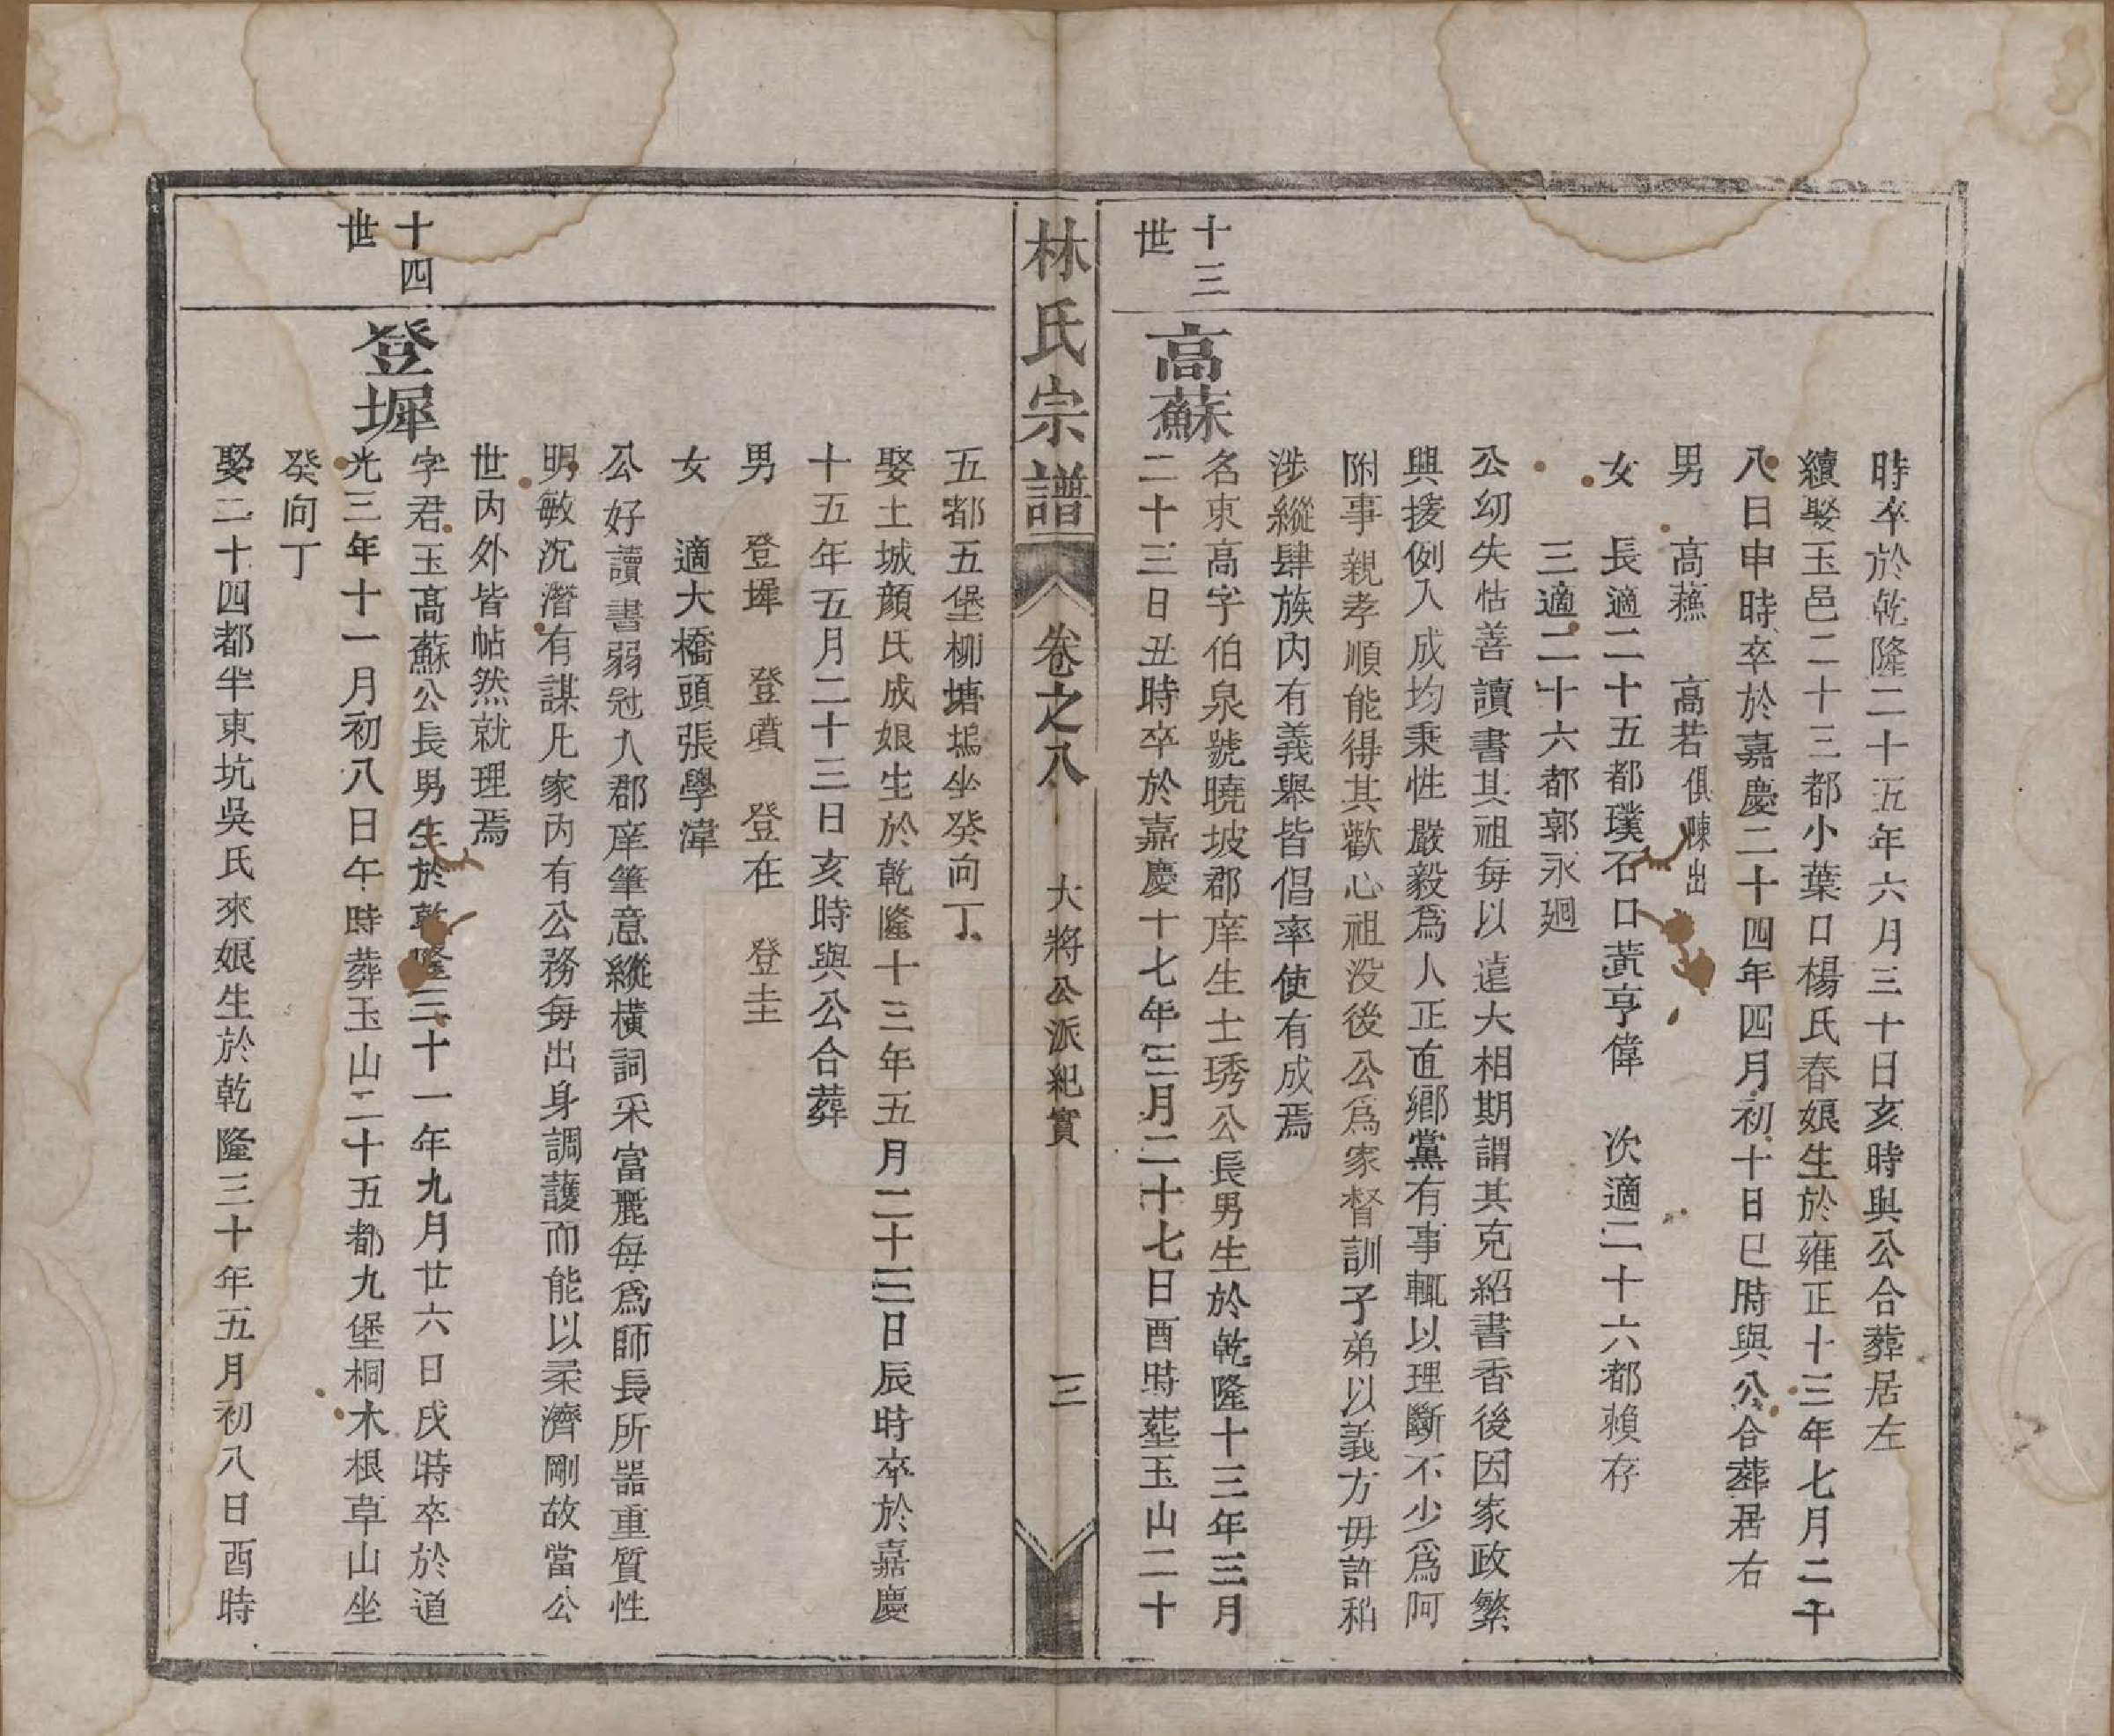 時卒於乾隆二十五年六月三十日亥時與公合葬居左
續娶玉邑二十三都小葉口楊氏春娘生於雍正十三年七月二十
八日申時卒於嘉慶二十四年四月初十日巳時與公合葬居右
男 高蘓 高若俱陳出
女 長適二十五都璞石口黃亨偉 次適二十六都賴存
三適二十六都郭永廻
公幼失怙善讀書其祖每以遠大相期謂其克紹書香後因家政繁
興援例入成均秉性嚴毅爲人正直鄉黨有事輒以理斷不少爲阿
附事親孝順能得其歡心祖没後公爲家督訓子弟以義方毋許稍
涉縱肆族內有義舉皆倡率使有成焉
十三世
高蘇
名東高字伯泉號曉坡郡庠生士琇公長男生於乾隆十三年三月
二十三日丑時卒於嘉慶十七年三月二十七日酉時塟玉山二十
林氏宗譜 卷之八 大將公派紀實 三
五都五堡柳塘塢坐癸向丁
娶土城顔氏成娘生於乾隆十三年五月二十三日辰時卒於嘉慶
十五年五月二十三日亥時與公合葬
男 登墀 登墳 登在 登圭
女 適大橋頭張學潭
公好讀書弱冠入郡庠筆意縱橫詞采富麗每爲師長所器重質性
明敏沉潛有謀凡家內有公務每出身調護而能以柔濟剛故當公
世內外皆帖然就理焉
十四世
登墀
字君玉高蘇公長男生於乾隆三十一年九月廿六日戌時卒於道
光三年十一月初八日午時葬玉山二十五都九堡桐木根草山坐
癸向丁
娶二十四都半東坑吳氏來娘生於乾隆三十年五月初八日酉時